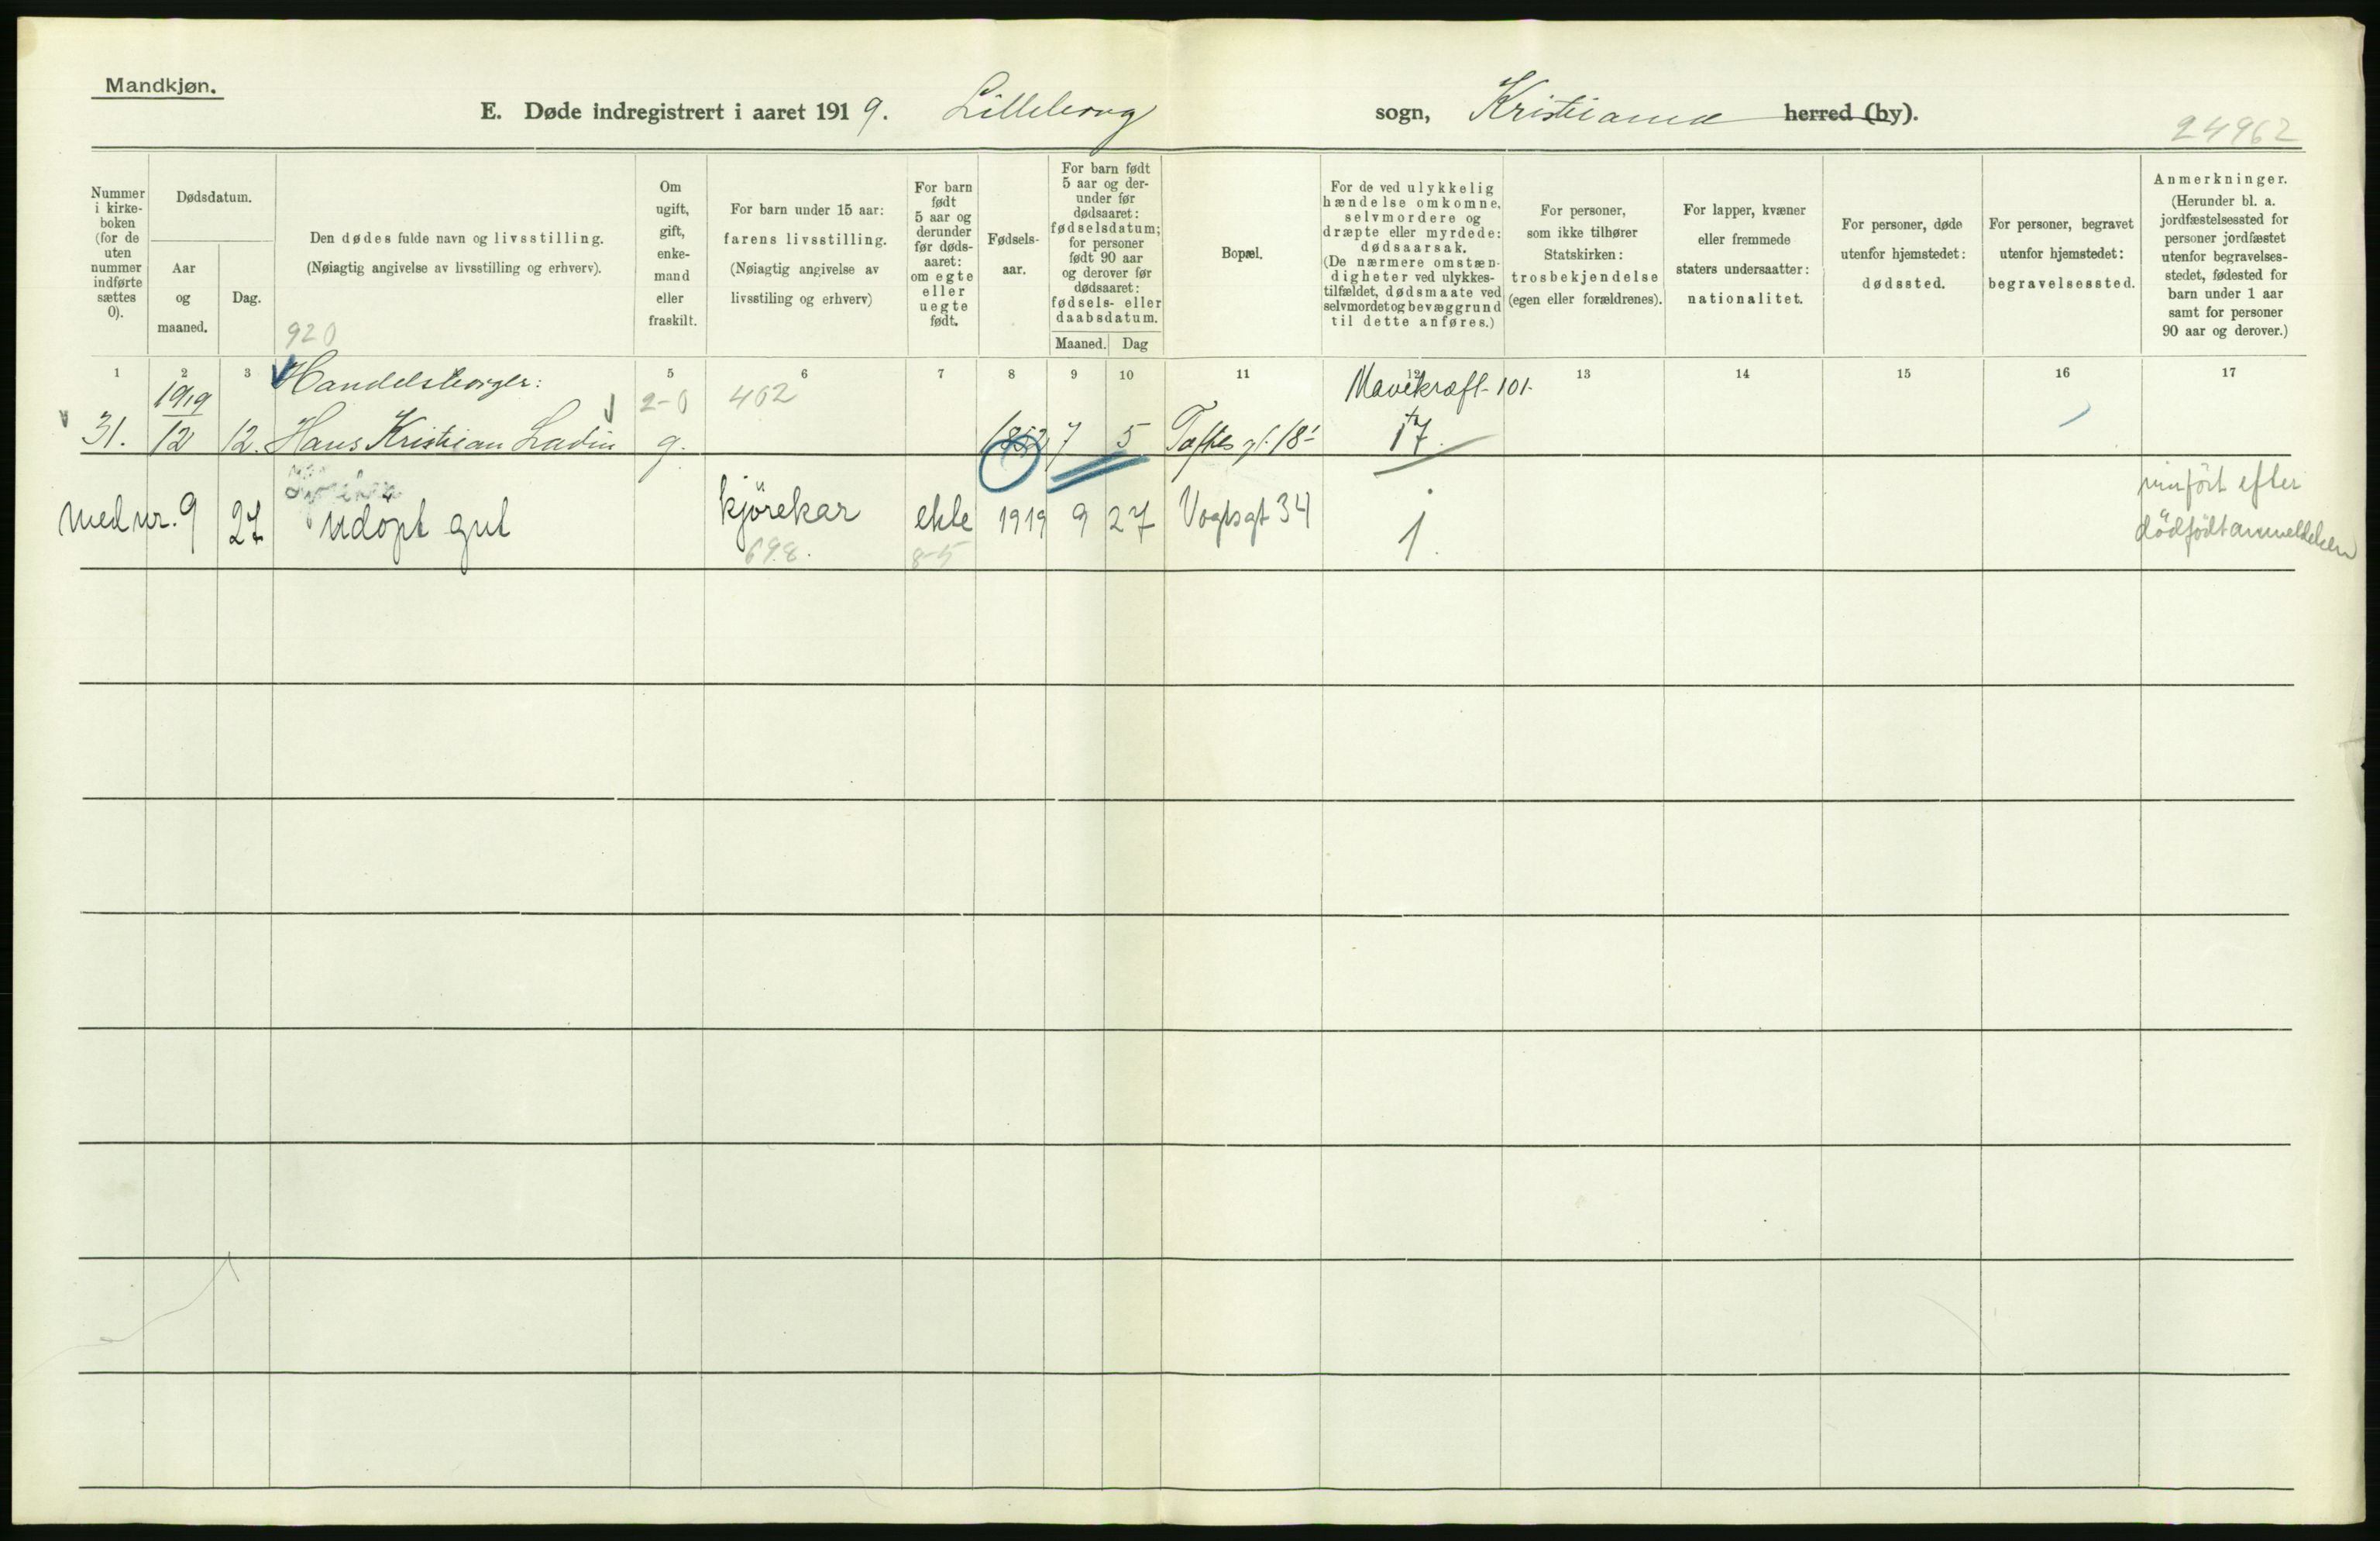 Mandkjøn.
E. Døde indregistrert i aaret 1919. Lilleborg sogn, Kristiania herred (by).
24962
Nummer i kirkeboken (for de uten nummer indførte sættes 0).
Dødsdatum.
Aar og maaned.
Dag.
Den dødes fulde navn og livsstilling.
(Nøiagtig angivelse av livsstilling og erhverv).
920
Om ugift, gift, enkemand eller fraskilt.
For barn under 15 aar:
farens livsstilling.
(Nøiagtig angivelse av livsstiling og erhverv)
For barn født 5 aar og derunder før dødsaaret: om egte eller uegte født.
Fødselsaar.
For barn født 5 aar og derunder før dødsaaret: fødselsdatum; for personer født 90 aar og derover før dødsaaret: fødsels- eller daabsdatum.
Maaned. Dag
Bopæl.
For de ved ulykkelig hændelse omkomne, selvmordere og dræpte eller myrdede: dødsaarsak. (De nærmere omstændigheter ved ulykkestilfældet, dødsmaate ved selvmordet og bevæggrund til dette anføres.)
For personer, som ikke tilhører Statskirken: trosbekjendelse (egen eller forældrenes).
For lapper, kvæner eller fremmede staters undersaatter: nationalitet.
For personer, døde utenfor hjemstedet: dødssted.
For personer, begravet utenfor hjemstedet: begravelsessted.
Anmerkninger.
(Herunder bl. a. jordfæstelsessted for personer jordfæstet utenfor begravelsesstedet, fødested for barn under 1 aar samt for personer 90 aar og derover.)
1 2 3 5 6 7 8 9 10 11 12 13 14 15 16 17
1919 Handelsborger: 2-0 402 Mavekræft-101-
31. 12 12. Hans Kristian Ladin g. 1852 7 5 Toftes gt. 18 17.
med nr. 9 27 udöpt gut kjörekar ekte 1919 9 27 Vogtsgt 34 1.
698. 8-5
efter
dödfödtanmeldelsen